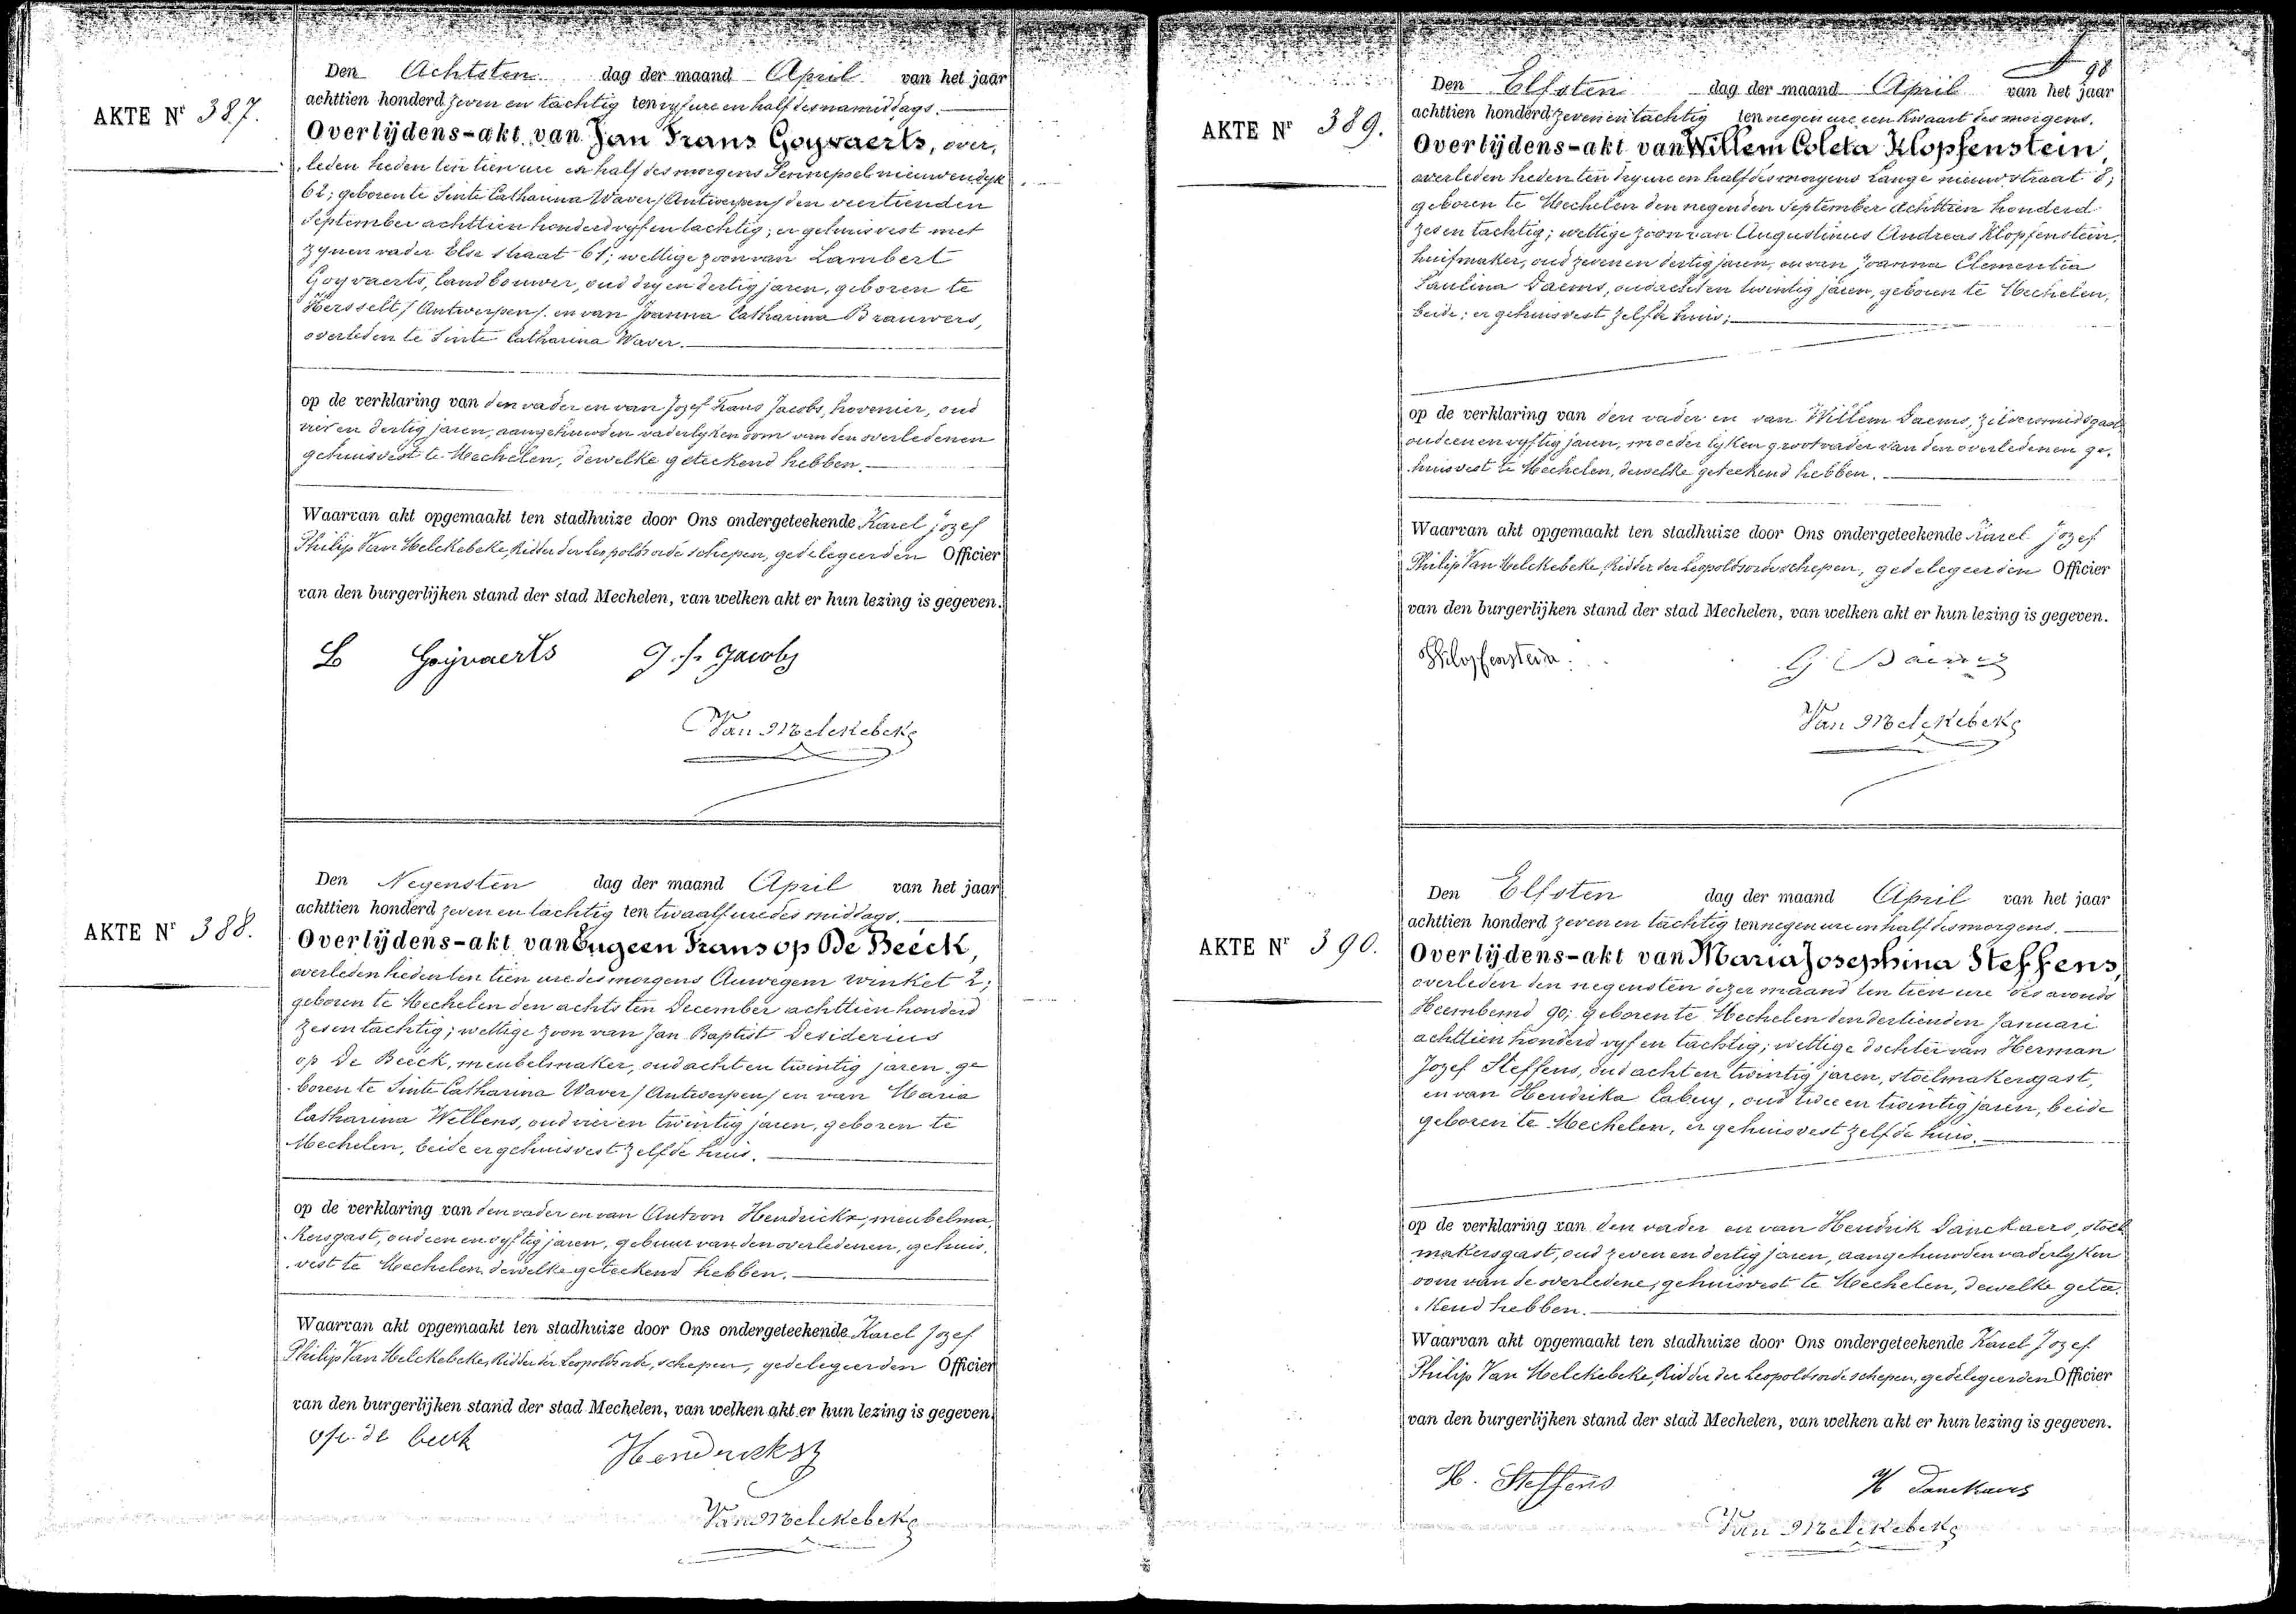 AKTE Nr 387.
Den Achtsten dag der maand April van het jaar
achttien honderd zeven en tachtig ten vyf ure en half des namiddags.
Overlijdens-akt van Jan Frans Goyvaerts, over,
leden heden ten tien ure en half des morgens Sennepoel nieuwendyk
62; geboren te Sinte Catharina Waver / Antwerpen / den veertienden
September achttien honderd vyf en tachtig; er gehuisvest met
zynen vader Else straat 61; wettige zoon van Lambert
Goyvaerts, landbouwer, oud dry en dertig jaren, geboren te
Hersselt / Antwerpen /. en van Joanna Catharina Brauwers,
overleden te Sinte Catharina Waver.
op de verklaring van den vader en van Jozef Frans Jacobs, hovenier, oud
vier en dertig jaren, aangehuwden vaderlyken oom van den overledenen
gehuisvest te Mechelen, dewelke geteekend hebben.
Waarvan akt opgemaakt ten stadhuize door Ons ondergeteekende Karel Jozef
Philip Van Melckebeke, Ridder der Leopoldsorde schepen, gedelegeerden Officier
van den burgerlijken stand der stad Mechelen, van welken akt er hun lezing is gegeven.
L Goyvaerts J. f. Jacobs
Van Melckebeke
AKTE Nr 388.
Den Negensten dag der maand April van het jaar
achttien honderd zeven en tachtig ten twaalf ure des middags.
Overlijdens-akt van Eugeen Frans op De Beéck,
overleden heden ten tien ure des morgens Auwegem winket 2;
geboren te Mechelen den achtsten December achttien honderd
zes en tachtig; wettige zoon van Jan Baptist Desiderius
op De Beéck, meubelmaker, oud acht en twintig jaren, ge
boren te Sinte Catharina Waver / Antwerpen / en van Maria
Catharina Wellens, oud vier en twintig jaren, geboren te
Mechelen, beide er gehuisvest zelfde huis.
op de verklaring van den vader en van Antoon Hendrickx, meubelma,
kersgast, oud een en vyftig jaren, gebuur van den overledenen, gehuis,
vest te Mechelen dewelke geteekend hebben.
Waarvan akt opgemaakt ten stadhuize door Ons ondergeteekende Karel Jozef
Philip Van Melckebeke, Ridder der Leopoldsorde, schepen, gedelegeerden Officier
van den burgerlijken stand der stad Mechelen, van welken akt er hun lezing is gegeven.
op de beeck Hendrickx
Van Melckebeke
98
AKTE Nr 389.
Den Elfsten dag der maand April van het jaar
achttien honderd zeven en tachtig ten negen ure een kwaart des morgens.
Overlijdens-akt van Willem Coleta Klopfenstein,
overleden heden ten dry ure en half des morgens Lange nieuwstraat 8;
geboren te Mechelen den negenden September achttien honderd
zes en tachtig; wettige zoon van Augustinus Andreas Klopfenstein,
huifmaker, oud zeven en dertig jaren, en van Joanna Clementia
Paulina Daems, oud acht en twintig jaren, geboren te Mechelen,
beide; er gehuisvest zelfde huis;
op de verklaring van den vader en van Willem Daems, zilversmidsgast
oud een en vyftig jaren, moederlyken grootvader van den overledenen ge,
huisvest te Mechelen, dewelke geteekend hebben.
Waarvan akt opgemaakt ten stadhuize door Ons ondergeteekende Karel Jozef
Philip Van Melckebeke, Ridder der Leopoldsorde schepen, gedelegeerden Officier
van den burgerlijken stand der stad Mechelen, van welken akt er hun lezing is gegeven.
Klopfenstein. G Daems
Van Melckebeke
AKTE Nr 390.
Den Elfsten dag der maand April van het jaar
achttien honderd zeven en tachtig ten negen ure en half des morgens.
Overlijdens-akt van Maria Josephina Steffens,
overleden den negensten dezer maand ten tien ure des avonds
Heembemd 90; geboren te Mechelen den dertienden Januari
achttien honderd vyf en tachtig; wettige dochter van Herman
Jozef Steffens, oud acht en twintig jaren, stoelmakersgast,
en van Hendrika Cabuy, oud twee en twintig jaren, beide
geboren te Mechelen, er gehuisvest zelfde huis.
op de verklaring van den vader en van Hendrik Danckaers, stoel
makersgast, oud zeven en dertig jaren, aangehuwden vaderlyken
oom van de overledene, gehuisvest te Mechelen, dewelke getee,
kend hebben.
Waarvan akt opgemaakt ten stadhuize door Ons ondergeteekende Karel Jozef
Philip Van Melckebeke, Ridder der Leopoldsorde schepen, gedelegeerden Officier
van den burgerlijken stand der stad Mechelen, van welken akt er hun lezing is gegeven.
H. Steffens H Danckaers
Van Melckebeke